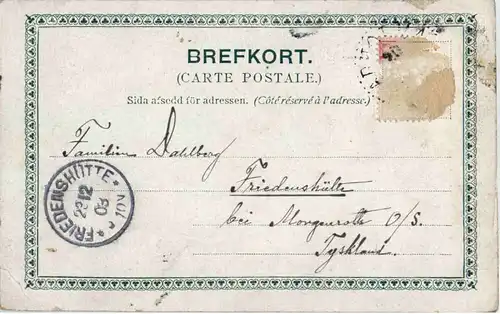 BREFKORT.
(CARTE POSTALE.)
Sida afsedd för adressen. (Côté réservé à l'adresse)
Familien Dahlberg
Friedenshütte
bei Morgenroth O/S.
Tyskland.
FRIEDENSHÜTTE
23 12
03